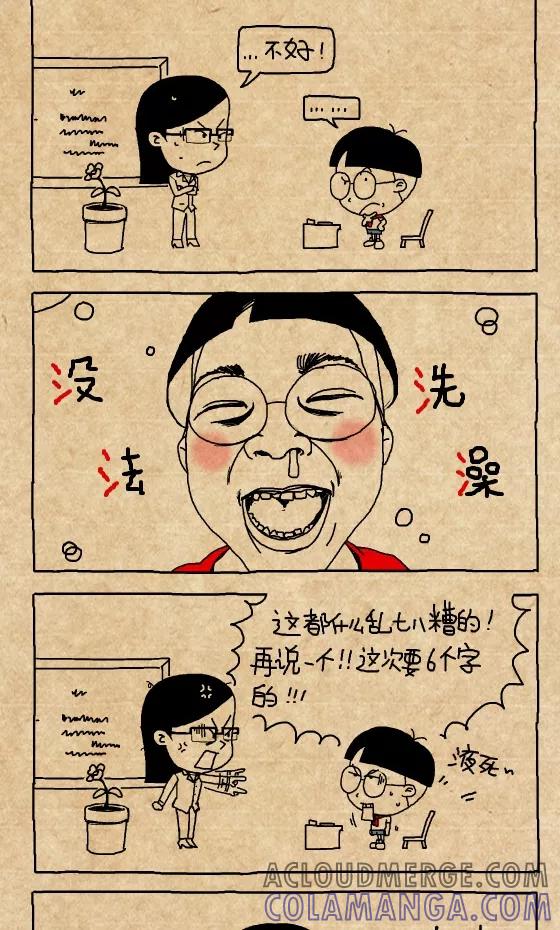 ...不好！
......
没 洗
法 澡
这都什么乱七八糟的！
再说一个!!这次要6个字
的!!!
液死
ACLOUDMERGE.COM
COLAMANGA.COM